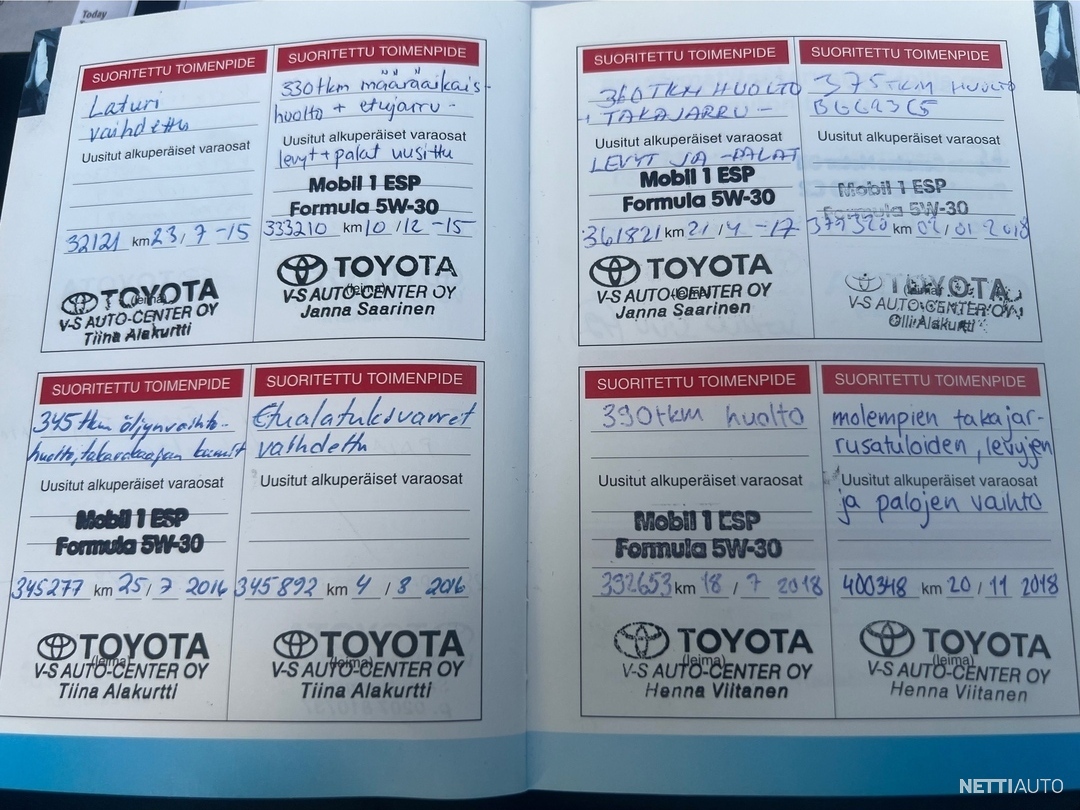 Today
SUORITETTU TOIMENPIDE
Laturi
vaihdettu
Uusitut alkuperäiset varaosat
32121 km 23/7 -15
TOYOTA
(leima)
V-S AUTO-CENTER OY
Tiina Alakurtti
SUORITETTU TOIMENPIDE
330tkm määräaikais-
huolto + etujarru-
Uusitut alkuperäiset varaosat
levyt + palat uusittu
Mobil 1 ESP
Formula 5W-30
333210 km 10/12 -15
TOYOTA
(leima)
V-S AUTO-CENTER OY
Janna Saarinen
SUORITETTU TOIMENPIDE
345tkm öljynvaihto-
huolto, takarakaapan kumit
Uusitut alkuperäiset varaosat
Mobil 1 ESP
Formula 5W-30
345277 km 25/7 2016
TOYOTA
(leima)
V-S AUTO-CENTER OY
Tiina Alakurtti
SUORITETTU TOIMENPIDE
Etualatukivarret
vaihdettu
Uusitut alkuperäiset varaosat
345892 km 4/8 2016
TOYOTA
(leima)
V-S AUTO-CENTER OY
Tiina Alakurtti
SUORITETTU TOIMENPIDE
360TKM HUOLTO
+ TAKAJARRU-
Uusitut alkuperäiset varaosat
LEVYT JA -PALAT
Mobil 1 ESP
Formula 5W-30
361821 km 21/4 -17
TOYOTA
(leima)
V-S AUTO-CENTER OY
Janna Saarinen
SUORITETTU TOIMENPIDE
375TKM HUOLTO
Uusitut alkuperäiset varaosat
Mobil 1 ESP
Formula 5W-30
km 02/01 2018
TOYOTA
(leima)
V-S AUTO-CENTER OY
Olli Alakurtti
SUORITETTU TOIMENPIDE
390tkm huolto
Uusitut alkuperäiset varaosat
Mobil 1 ESP
Formula 5W-30
392653 km 18/7 2018
TOYOTA
(leima)
V-S AUTO-CENTER OY
Henna Viitanen
SUORITETTU TOIMENPIDE
molempien takajar-
rusatuloiden, levyjen
Uusitut alkuperäiset varaosat
ja palojen vaihto
400348 km 20/11 2018
TOYOTA
(leima)
V-S AUTO-CENTER OY
Henna Viitanen
NETTIAUTO